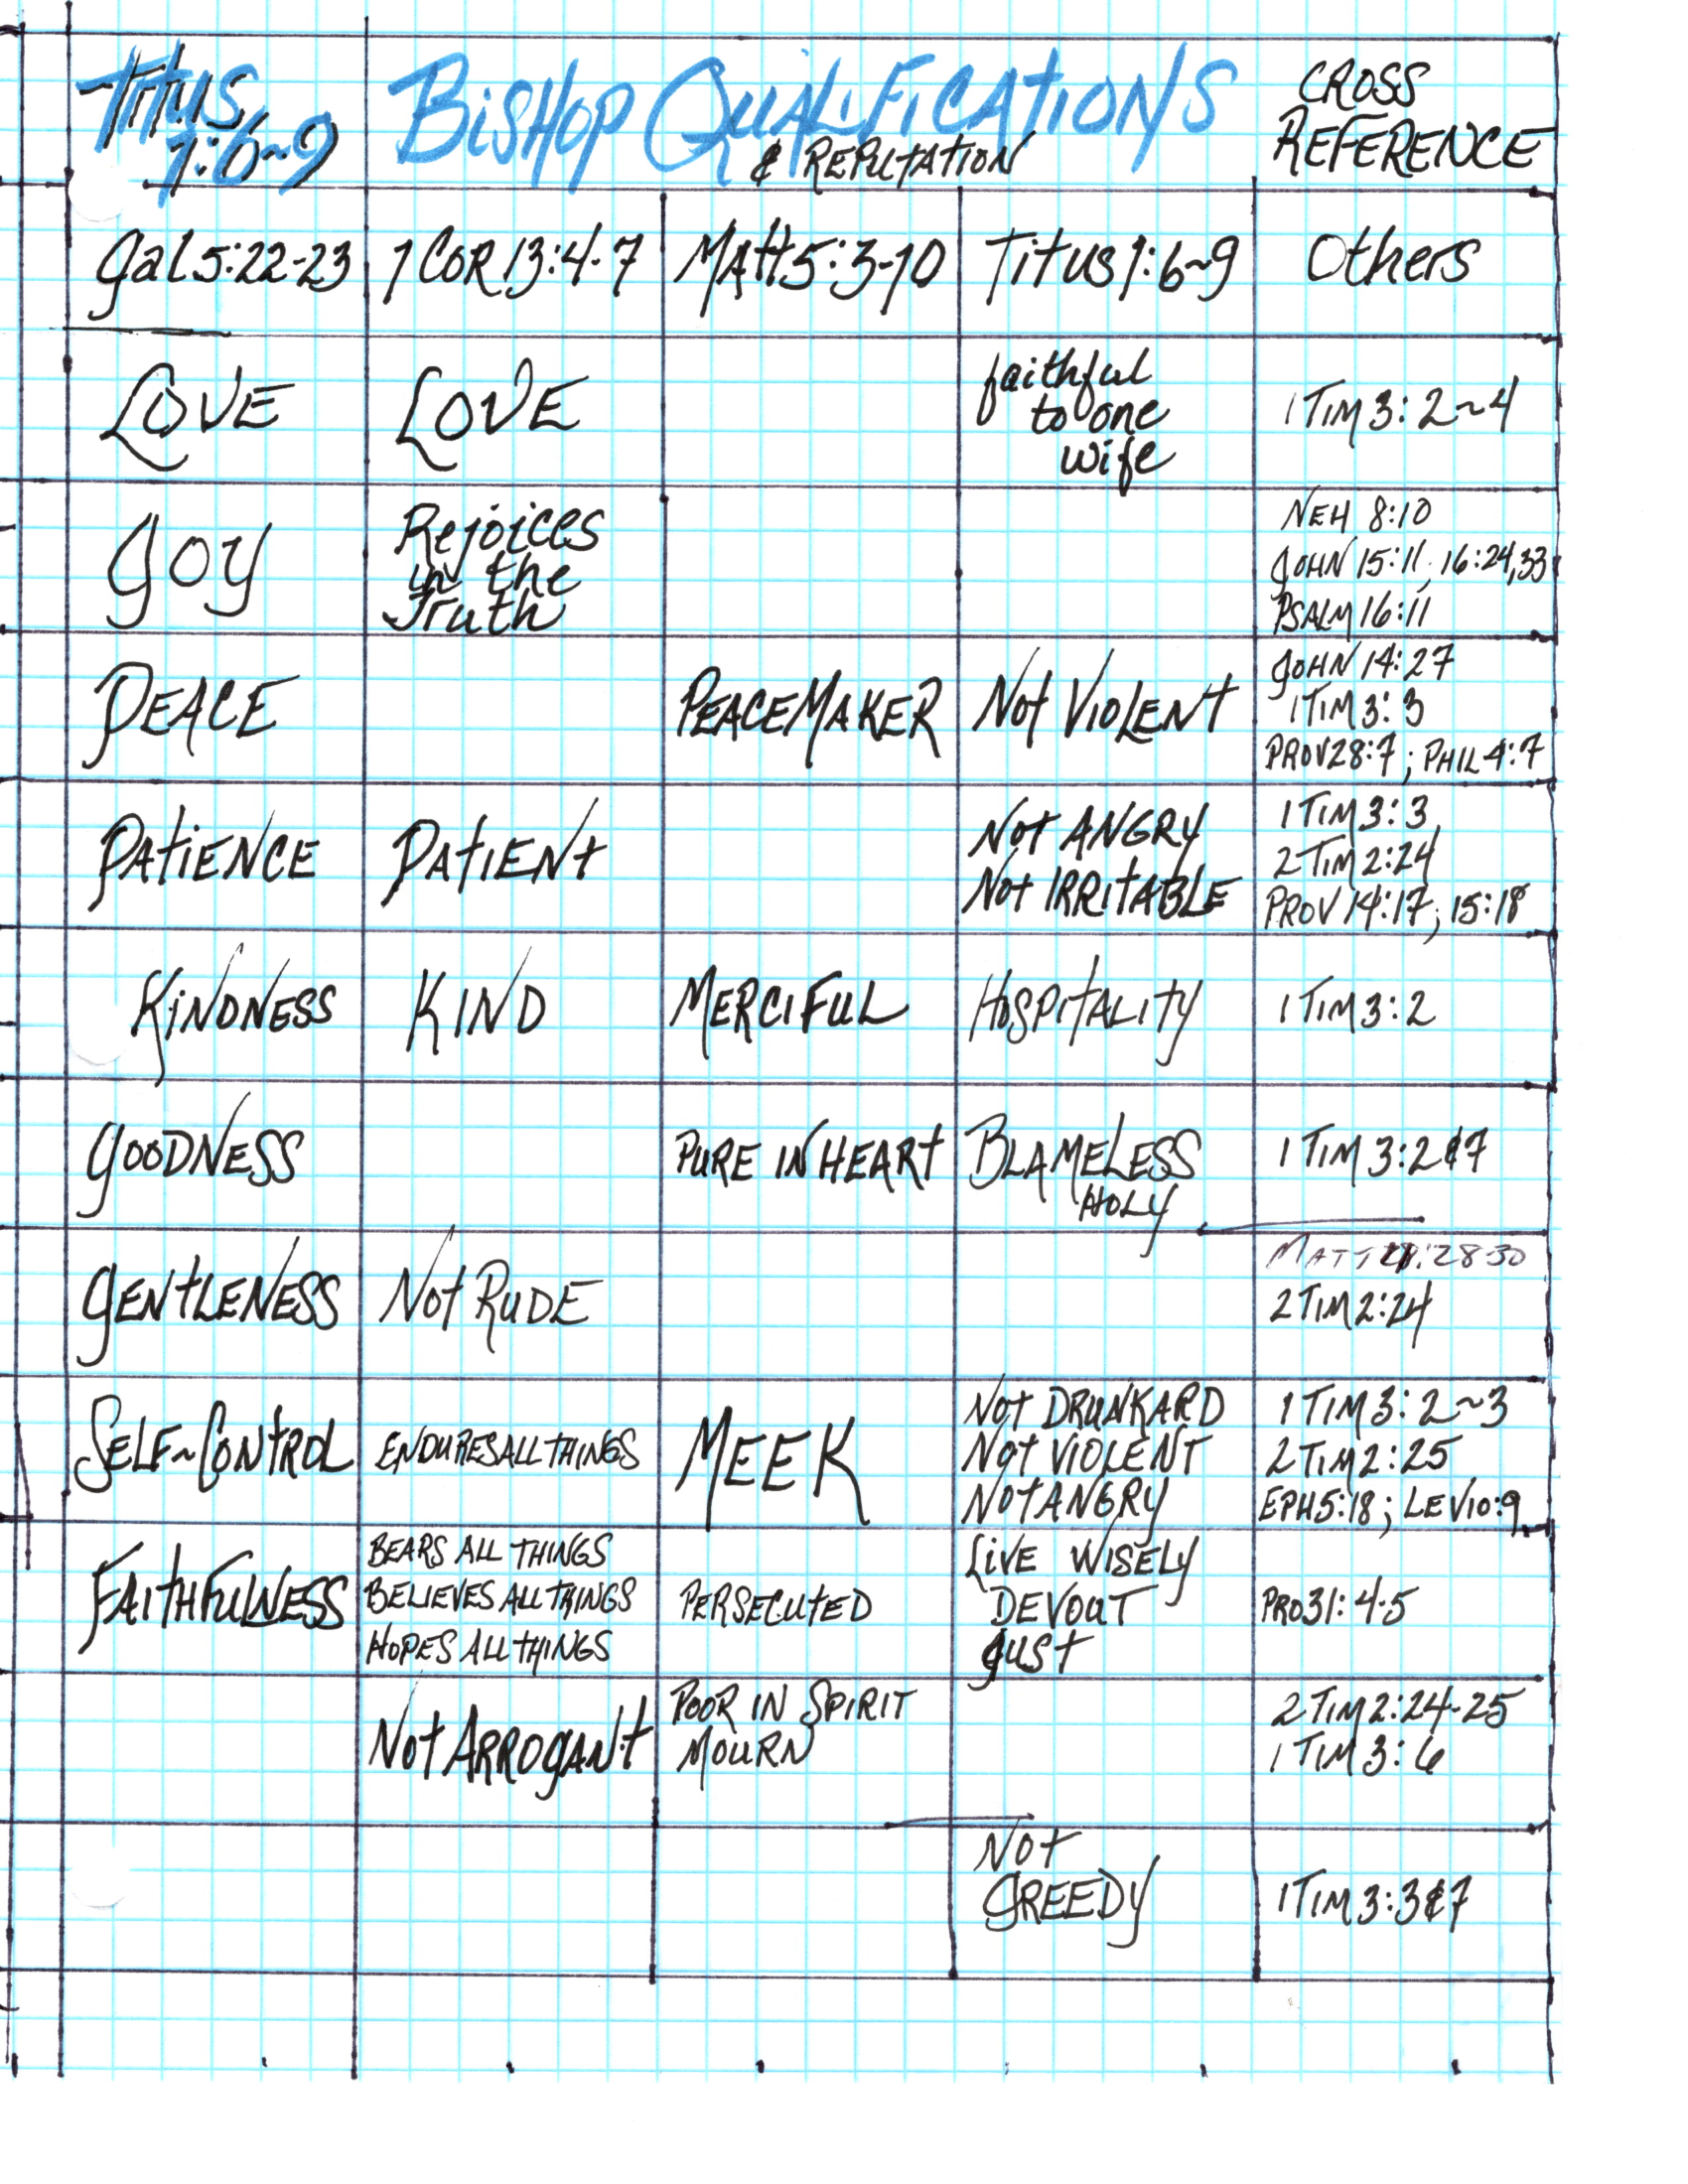 Titus 1:6~9
BISHOP QUALIFICATIONS
& REPUTATION
CROSS
REFERENCE
Gal 5:22-23 1 COR 13:4-7 MAtt 5:3-10 Titus 1:6~9 Others
LOVE LOVE faithful to one wife 1 TIM 3:2~4
JOY Rejoices in the Truth NEH 8:10
JOHN 15:11, 16:24,33
PSALM 16:11
PEACE PEACEMAKER Not VIOLENT JOHN 14:27
1 TIM 3:3
PROV 28:7; PHIL 4:7
PATIENCE PATIENT Not ANGRY
Not IRRITABLE 1 TIM 3:3
2 TIM 2:24
PROV 14:17; 15:18
KINDNESS KIND MERCIFUL HOSPITALITY 1 TIM 3:2
GOODNESS PURE IN HEART BLAMELESS
HOLY 1 TIM 3:2&7
GENTLENESS Not RUDE MATT 11:28-30
2 TIM 2:24
SELF~CONTROL ENDURES ALL THINGS MEEK Not DRUNKARD
Not VIOLENT
NOT ANGRY 1 TIM 3:2~3
2 TIM 2:25
EPH 5:18; LEV 10:9
FAITHFULNESS BEARS ALL THINGS
BELIEVES ALL THINGS
HOPES ALL THINGS PERSECUTED LIVE WISELY
DEVOUT
JUST PRO 31:4-5
Not ARROGANT POOR IN SPIRIT
MOURN 2 TIM 2:24-25
1 TIM 3:6
Not
GREEDY 1 TIM 3:3&7